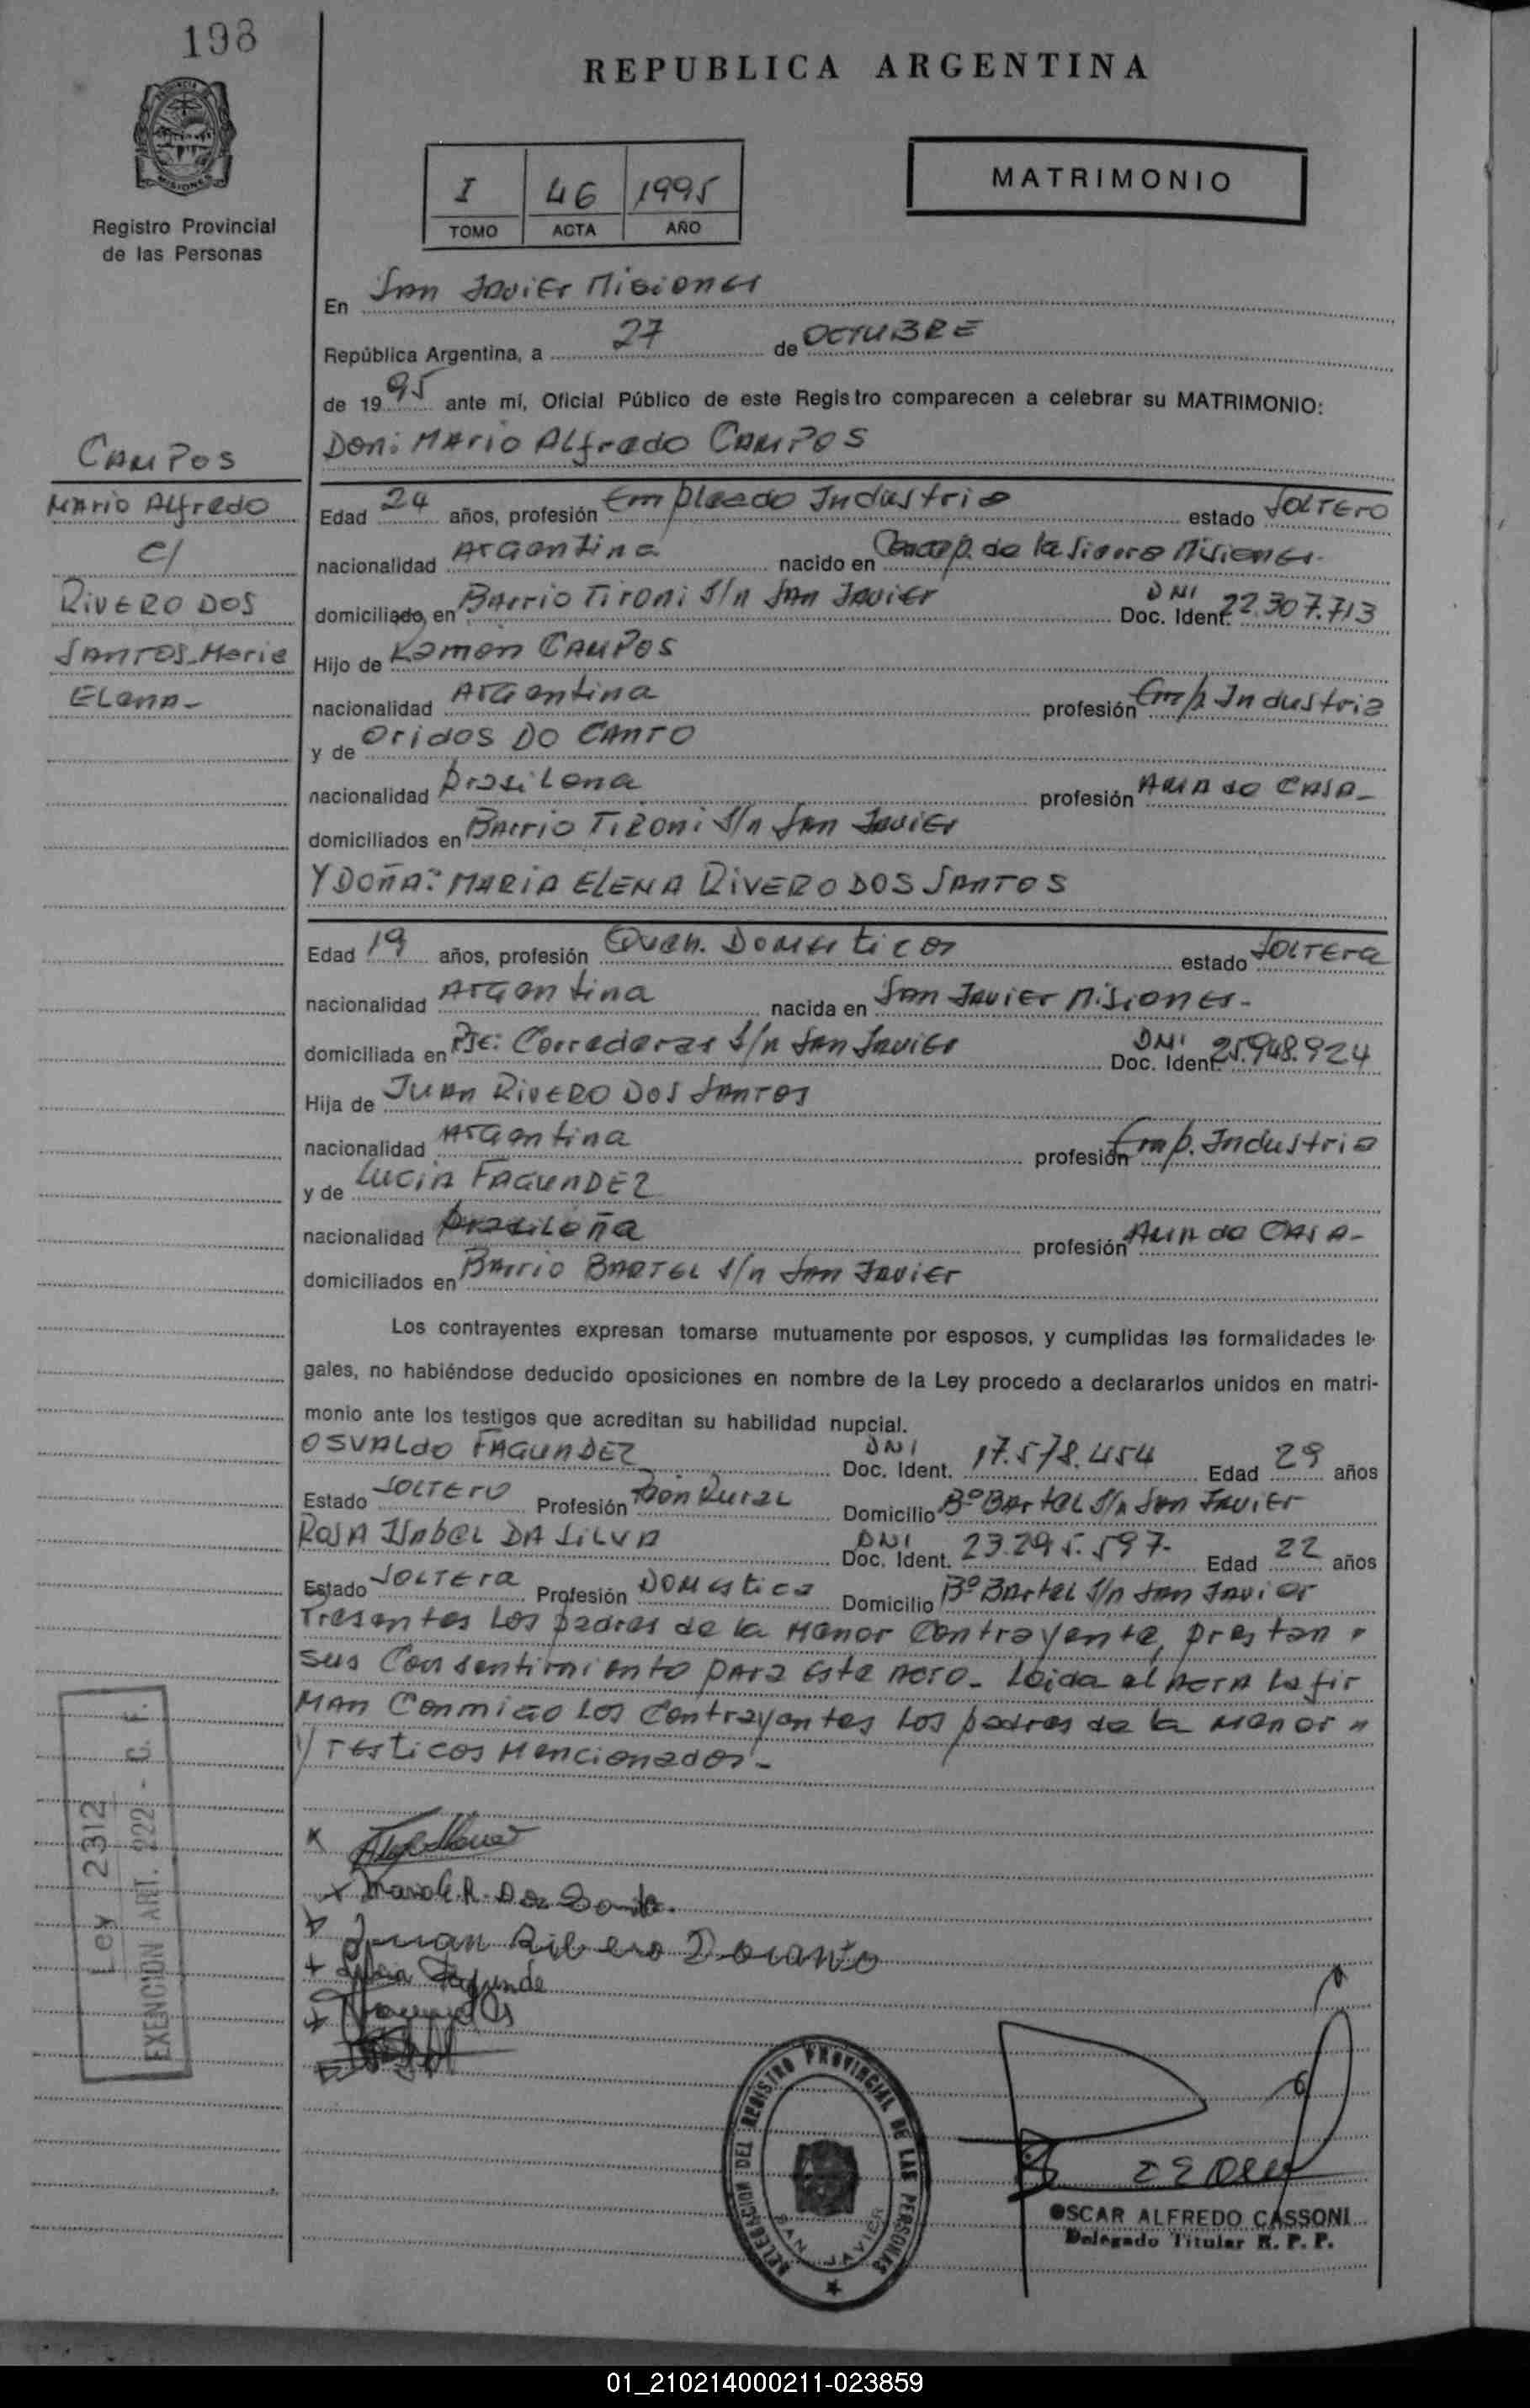 198
REPUBLICA ARGENTINA
MATRIMONIO
I 46 1995
TOMO ACTA AÑO
MISIONES
Registro Provincial
de las Personas
En San Javier Misiones
República Argentina, a 27 de OCTUBRE
de 1995 ante mí, Oficial Público de este Registro comparecen a celebrar su MATRIMONIO:
Don: Mario Alfredo CAMPOS
CAMPOS
Mario Alfredo
c/
RIVERO DOS
SANTOS Maria
Elena-
Edad 24 años, profesión Empleado Industria estado SOLTERO
nacionalidad Argentina nacido en Concep. de la Sierra Misiones-
domiciliado en Barrio Tironi S/n San Javier DNI Doc. Ident. 22.307.713
Hijo de Ramón CAMPOS
nacionalidad Argentina profesión Emp Industria
y de Oridos DO CANTO
nacionalidad Brasilena profesión AMA de CASA-
domiciliados en Barrio Tironi S/n San Javier
Y DOÑA: MARIA ELENA RIVERO DOS SANTOS
Edad 19 años, profesión Queh. Domesticos estado SOLTERA
nacionalidad Argentina nacida en San Javier Misiones-
domiciliada en Pje: Correderas S/n San Javier DNI Doc. Ident. 25.948.924
Hija de JUAN RIVERO DOS SANTOS
nacionalidad Argentina profesión Emp. Industria
y de Lucia FAGUNDEZ
nacionalidad Brasileña profesión AMA de CASA-
domiciliados en Barrio BARTEL S/n San Javier
Los contrayentes expresan tomarse mutuamente por esposos, y cumplidas las formalidades le-
gales, no habiéndose deducido oposiciones en nombre de la Ley procedo a declararlos unidos en matri-
monio ante los testigos que acreditan su habilidad nupcial.
OSVALDO FAGUNDEZ DNI Doc. Ident. 17.578.454 Edad 29 años
Estado SOLTERO Profesión Peón Rural Domicilio Bº Bartel S/n San Javier
Rosa Isabel DA SILVA DNI Doc. Ident. 23.295.597- Edad 22 años
Estado SOLTERA Profesión Domestica Domicilio Bº Bartel S/n San Javier
Presentes Los padres de la Menor Contrayente, prestan
sus Consentimiento para Este Acto- Leida el Acta la fir
MAN Conmigo Los Contrayentes Los padres de la Menor
y Testigos Mencionados-
Ley 2312
EXENCION ART. 222 - C. F.
Juan Ribero Dosanto
Fagunde
DELEGACION DEL REGISTRO PROVINCIAL DE LAS PERSONAS
SAN JAVIER
OSCAR ALFREDO CASSONI
Delegado Titular R. P. P.
01_210214000211-023859